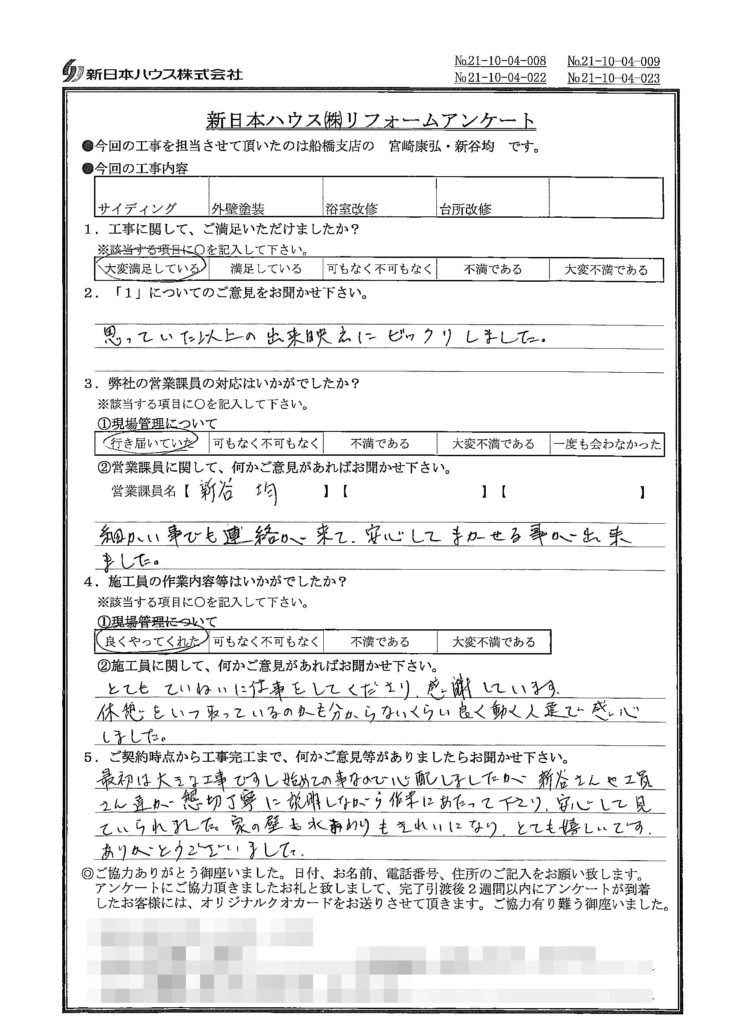 新日本ハウス株式会社
No.21-10-04-008 No.21-10-04-009
No.21-10-04-022 No.21-10-04-023
新日本ハウス㈱リフォームアンケート
●今回の工事を担当させて頂いたのは船橋支店の 宮崎康弘・新谷均 です。
●今回の工事内容
サイディング 外壁塗装 浴室改修 台所改修
1．工事に関して、ご満足いただけましたか？
※該当する項目に○を記入して下さい。
大変満足している 満足している 可もなく不可もなく 不満である 大変不満である
2．「1」についてのご意見をお聞かせ下さい。
思っていた以上の出来映えにビックリしました。
3．弊社の営業課員の対応はいかがでしたか？
※該当する項目に○を記入して下さい。
①現場管理について
行き届いていた 可もなく不可もなく 不満である 大変不満である 一度も会わなかった
②営業課員に関して、何かご意見があればお聞かせ下さい。
営業課員名【 新谷 均 】【 】【 】
細かい事でも連絡が来て、安心してまかせる事が出来
ました。
4．施工員の作業内容等はいかがでしたか？
※該当する項目に○を記入して下さい。
①現場管理について
良くやってくれた 可もなく不可もなく 不満である 大変不満である
②施工員に関して、何かご意見があればお聞かせ下さい。
とてもていねいに仕事をしてくださり、感謝しています。
休憩をいつ取っているのかも分からないくらい良く動く人達で感心
しました。
5．ご契約時点から工事完工まで、何かご意見等がありましたらお聞かせ下さい。
最初は大きな工事ですし始めての事なので心配しましたが 新谷さんや工員
さん達が懇切丁寧に説明しながら作業にあたって下さり、安心して見
ていられました。家の壁も水まわりもきれいになり、とても嬉しいです。
ありがとうございました。
◎ご協力ありがとう御座いました。日付、お名前、電話番号、住所のご記入をお願い致します。
アンケートにご協力頂きましたお礼と致しまして、完了引渡後2週間以内にアンケートが到着
したお客様には、オリジナルクオカードをお送りさせて頂きます。ご協力有り難う御座いました。